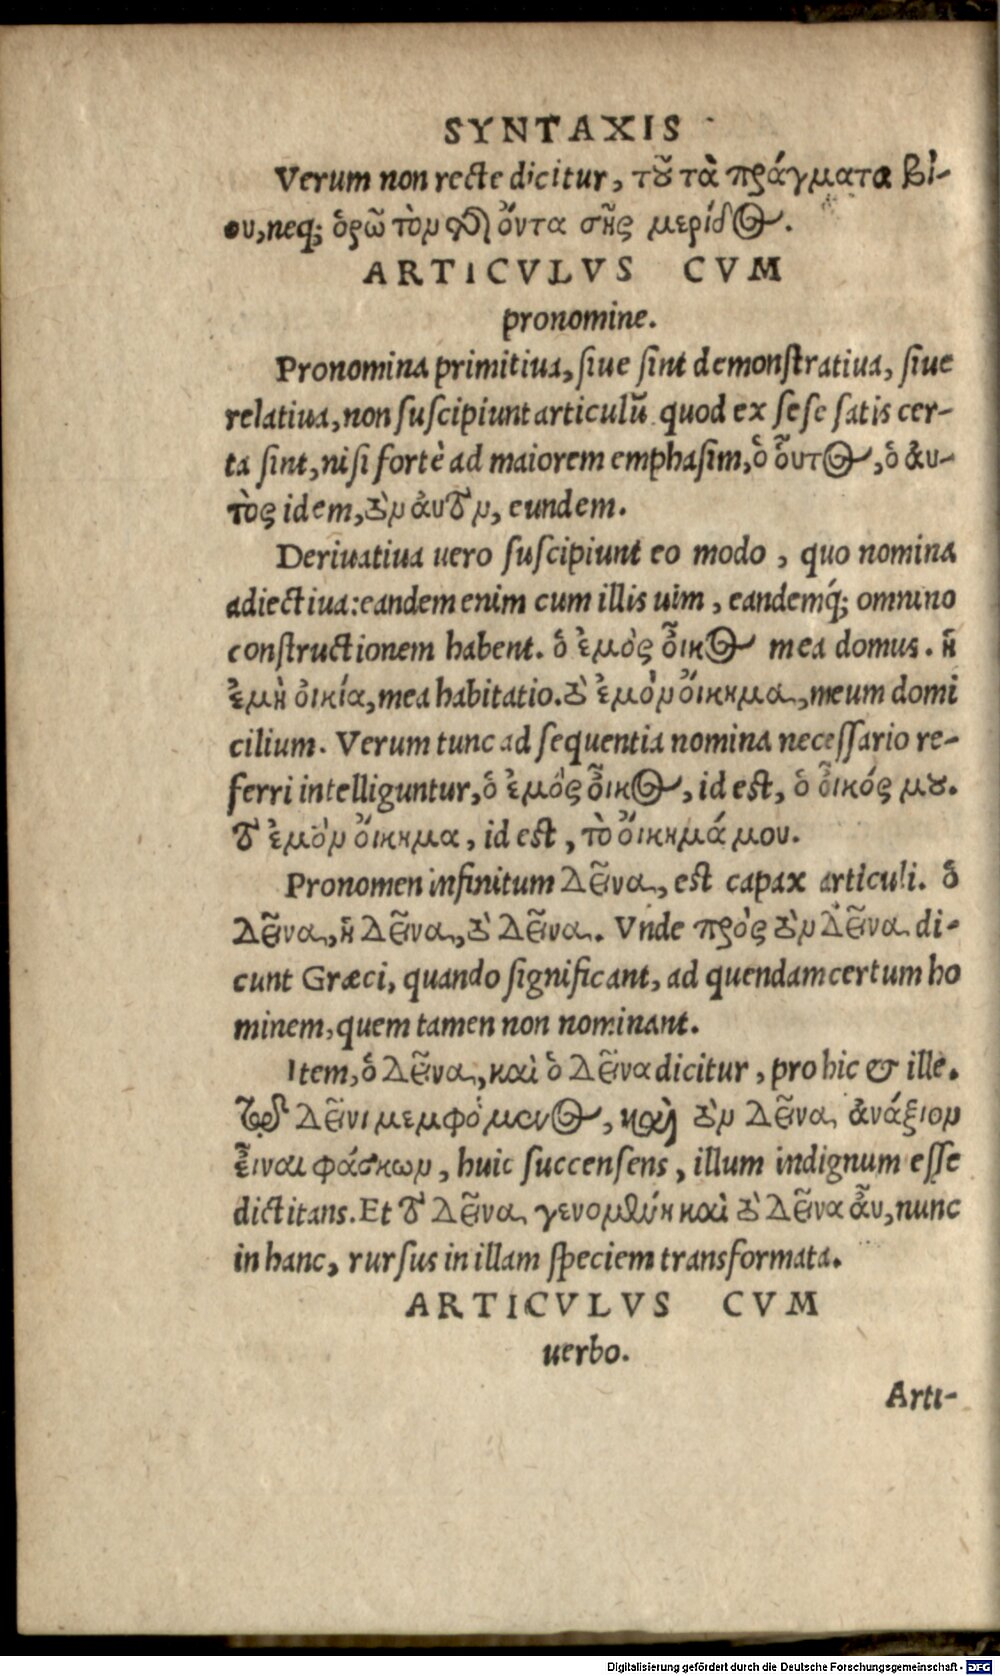 SYNTAXIS
Verum non recte dicitur, τοῦ τὰ πράγματα βί-
ου, neq; ὁρῶ τὸν ὄντα σῆς μερίδος.
ARTICVLVS CVM
pronomine.
Pronomina primitiua, siue sint demonstratiua, siue
relatiua, non suscipiunt articulũ quod ex sese satis cer-
ta sint, nisi fortè ad maiorem emphasim, ὁ οὗτος, ὁ ἀυ-
τὸς idem, τὸν ἀυτὸν, eundem.
Deriuatiua uero suscipiunt eo modo, quo nomina
adiectiua: eandem enim cum illis uim, eandemq́; omnino
constructionem habent. ὁ ἐμὸς οἶκος mea domus. ἡ
ἐμὴ οἰκία, mea habitatio. τὸ ἐμὸν οἴκημα, meum domi
cilium. Verum tunc ad sequentia nomina necessario re-
ferri intelliguntur, ὁ ἐμὸς οἶκος, id est, ὁ οἶκός μου.
τὸ ἐμὸν οἴκημα, id est, τὸ οἴκημά μου.
Pronomen infinitum δεῖνα, est capax articuli. ὁ
δεῖνα, ἡ δεῖνα, τὸ δεῖνα. Vnde πρὸς τὸν δεῖνα di-
cunt Græci, quando significant, ad quendam certum ho
minem, quem tamen non nominant.
Item, ὁ δεῖνα, καὶ ὁ δεῖνα dicitur, pro hic & ille.
τῷ δεῖνι μεμφόμενος, καὶ τὸν δεῖνα ἀνάξιον
εἶναι φάσκων, huic succensens, illum indignum esse
dictitans. Et τὸ δεῖνα γενομένη καὶ τὸ δεῖνα ἆυ, nunc
in hanc, rursus in illam speciem transformata.
ARTICVLVS CVM
uerbo.
Arti-
Digitalisierung gefördert durch die Deutsche Forschungsgemeinschaft - DFG